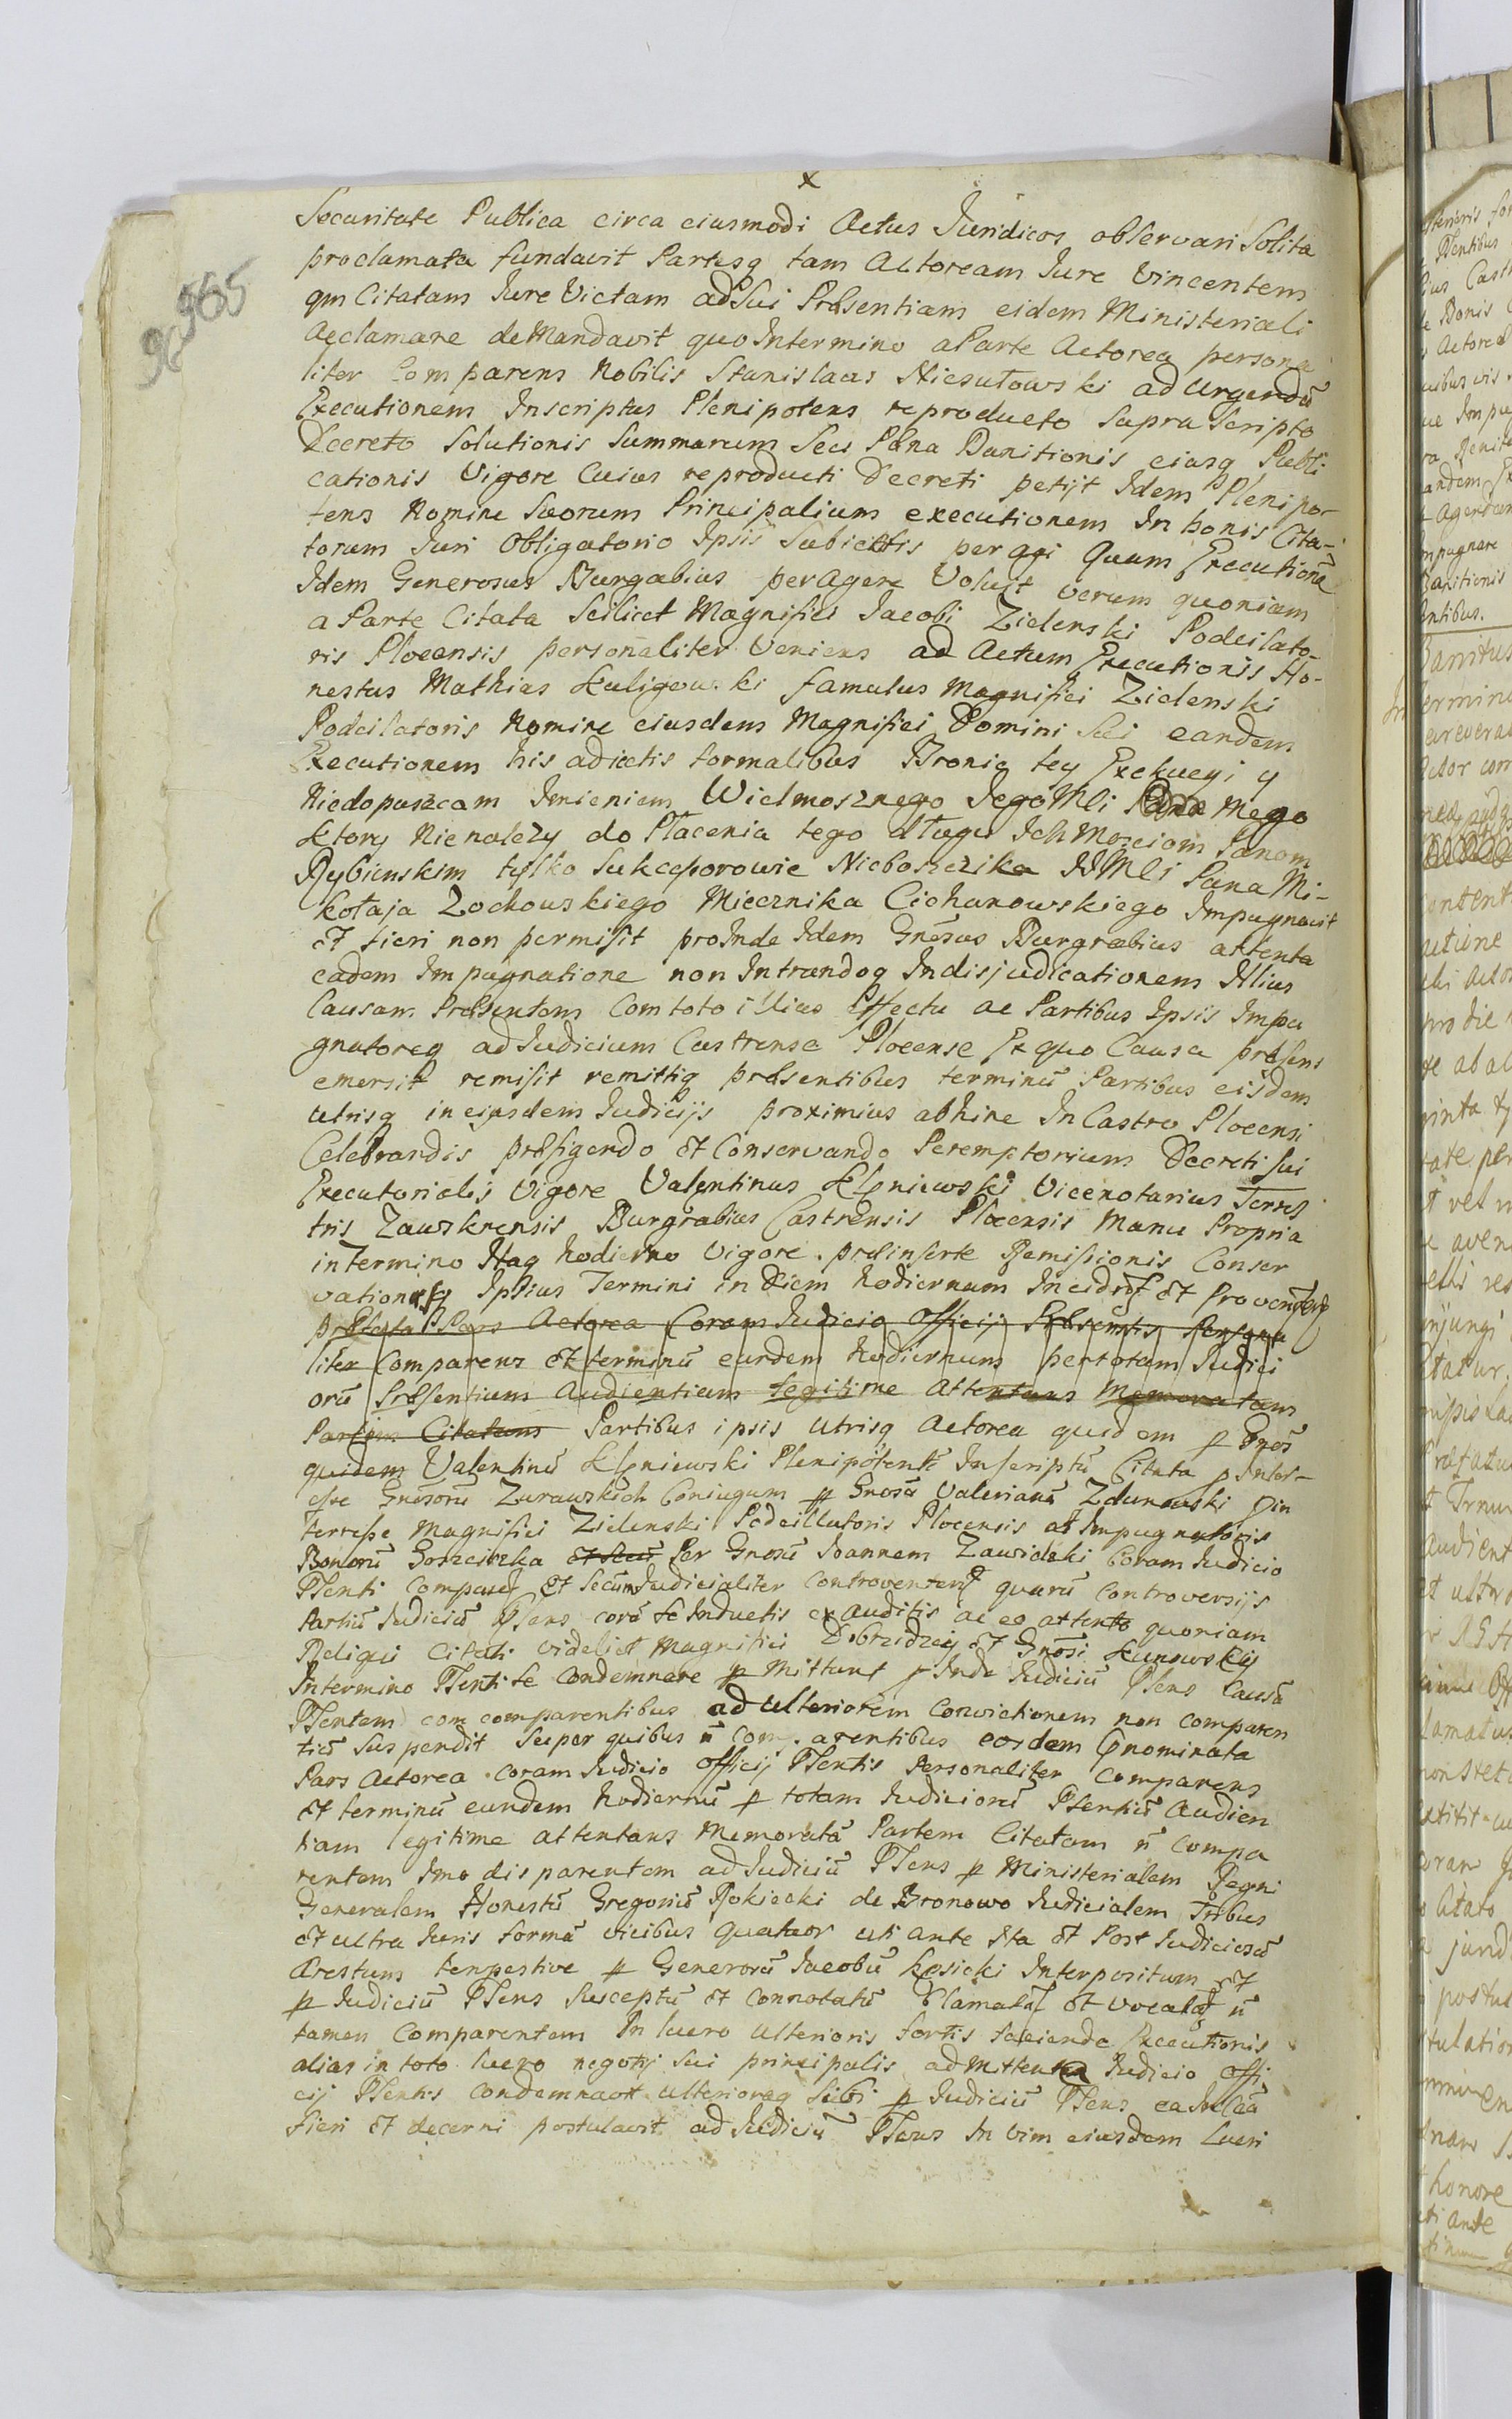 x
965
Securitate Publica circa eiusmodi Actus Juridicos observari Solita
proclamata fundavit Partesq tam Actoream Jure Vincentem
qm Citatam Jure Victam ad Sui Præsentiam eidem Ministeriali
Acclamare de Mandavit quo In termino a Parte Actorea persona
liter Comparens Nobilis Stanislaus Niesułowski ad Urgendū
Executionem Inscriptus Plenipotens reproducto supra Scripto
Decreto Solutionis Summarum Seu Pæna Banitionis eiusq Publi
cationis Vigore Cuius reproducti Decreti petijt Idem Plenipo-
tens Nomine Suorum Principalium executionem In bonis Cita-
torum Juri Obligatorio Ipsis Subiectis peragi Quam Executionē
Idem Generosus Burgabius per Agere Voluit verum quoniam
a Parte Citata Scilicet Magnifici Jacobi Zielenski Podczilato-
ris Plocensis personaliter Veniens ad Actum Executionis Ho-
nestus Mathias Kuligowski famulus Magnifici Zielenski
Podczilatoris Nomine eiusdem Magnifici Domini Sui eandem
Executionem his adiectis formalibus Bronię tey Exekucyi y
Niedopuszcam Jmieniem Wielmosznego Jego Mli Pana Mego
ktory Nienależy do Płacenia tego długu Ich Mosciom Panom
Rybienskim tylko Sukcessorowie Nieboszczika JJMli Pana Mi-
kołaja Zochowskiego Miecznika Ciehanowskiego Impugnavit
et fieri non permisit pro Inde Idem Gnōsus Burgrabius attenta
eadem Impugnatione non Intrandoq In disjudicationem Illius
Causam Præsentem Com toto illius Effectu ac Partibus Ipsis Impu
gnatoreq ad Judicium Castrense Plocense Ex quo Causa præsens
emersit remisit remittiq præsentibus terminū Partibus eisdem
Utrisq in eiusdem Judicijs proximius abhinc In Castro Plocensi
Celebrandis præfigendo et Conservando Peremptorium Decreti Sui
Executorialis Vigore Valentinus Kłpniewski Vicenotarius Terres
tris Zawskrensis Burgrabius Castrensis Plocensis Manu Propria
in Termino Itaq hodierno Vigore præinserte Remissionis Conser
vationisq Ipsius Termini in Diem hodiernum Incidẽ et Provenẽ
præfata Pars Actorea Coram Judicio Officij Præsentis Persona
liter Comparens et terminū eundem hodiernum per totam Judici
orū Præsentium Audientiam legitime Attentans Memoratam
Partem Citatam Partibus ipsis Utrisq Actorea quidem p Gnōs
quidem Valentinū Kłpniewski Plenipotentē Inscriptū Citata p Inter-
esse Gnōsorū Zurawskich Coniugum p Gnosū Valerianū Zdunowski p in
terresse Magnifici Zielenski Podczillatoris Plocensis at Impugnatoris
Bonorū Gorzcitzka et Secū Per Gnosū Joannem Zawidzki Coram Judicio
Psenti Comparē et Secum Judicialiter Controventenẽ quarū Controversijs
Partiū Judiciū Psens corā Se Inductis ex Auditis ac eo attento quoniam
Reliqui Citati videlict Magnifici Dobrzidzcy et Gnōsi Kunowsky
In termino Psenti Se Condemnare p Mittunt p Inde Judiciū Psens Causā
Psentem com comparentibus ad Ulteriorem Convictionem non comparen
tiū Suspendit Super quibus ñ Comparentibus eosdem Pnominata
Pars Actorea coram Judicio Officij Psentis Personaliter Comparens
et terminū eundem hodiernū p totam Judiciorū Psentiū Audien
tiam legitime Attentans Memoratā Partem Citatam ñ Compa
rentem Imo disparentem ad Judiciū Psens p Ministerialem Regni
Generalem Honestū Gregoriū Rokicki de Bronowo Judicialem Tribus
et ultra Juris formā vicibus quatuor uti ante Ita et Post Judiciosū
Arestum tempestive p Generosū Jacobū Kosicki Interpositum et
p Judiciū Psens Susceptū et Connotatū Clamatẽ et Vocatẽ ñ
tamen Comparentem In lucro Ulterioris Sortis faciendæ Executionis
alias in toto lucro negotij Sui principalis admittente Judicio Offi
cij Psentis Condemnavit Ulterioreq Sibi p Judiciū Psens ea In Cāū
fieri et decerni postulavit ad Judiciū Psens In Vim eiusdem Lucri